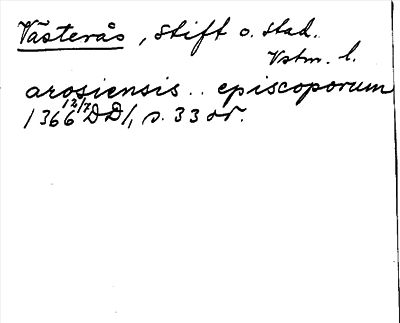 Västerås, stift o. stad.
Vstm. l.
arosiensis .. episcoporum
1366 12/7 DD/, s. 33 or.